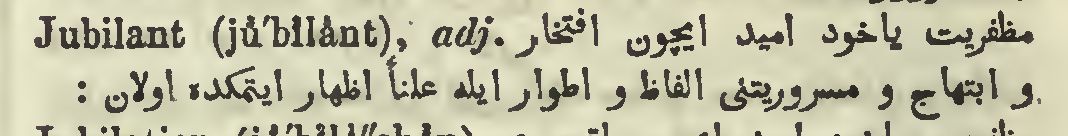 Jubilant (jú′bĭlȧnt), adj. مظفریت یاخود امید ایچون افتخار
و ابتهاج و مسروریتنی الفاظ و اطوار ایله علناً اظهار ایتمکده اولان :